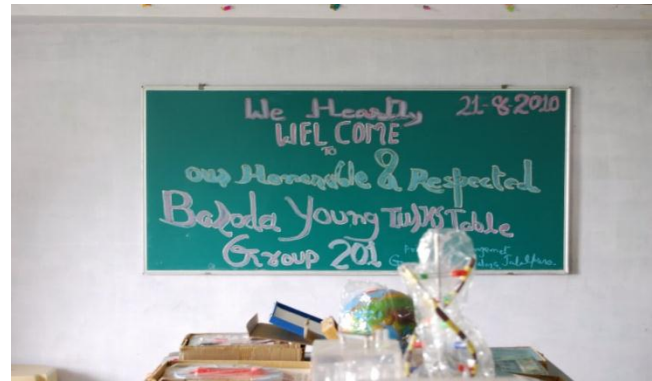 We Heartly 21-8-2010
WELCOME
TO
our Honorable & Respected
Baroda Young Turks Table
Group 201